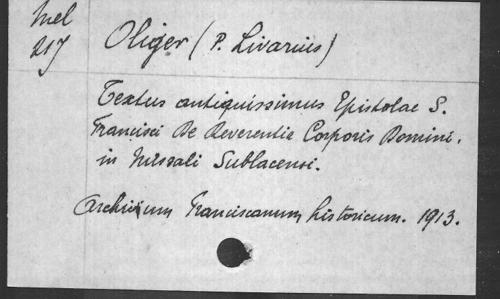 Mel
217
Oliger (P. Livarius)
Textus antiquissimus Epistolae S.
Francisci De Reverentia Corporis Domini,
in Missali Sublacensi.
Archivum Franciscanum historicum. 1913.